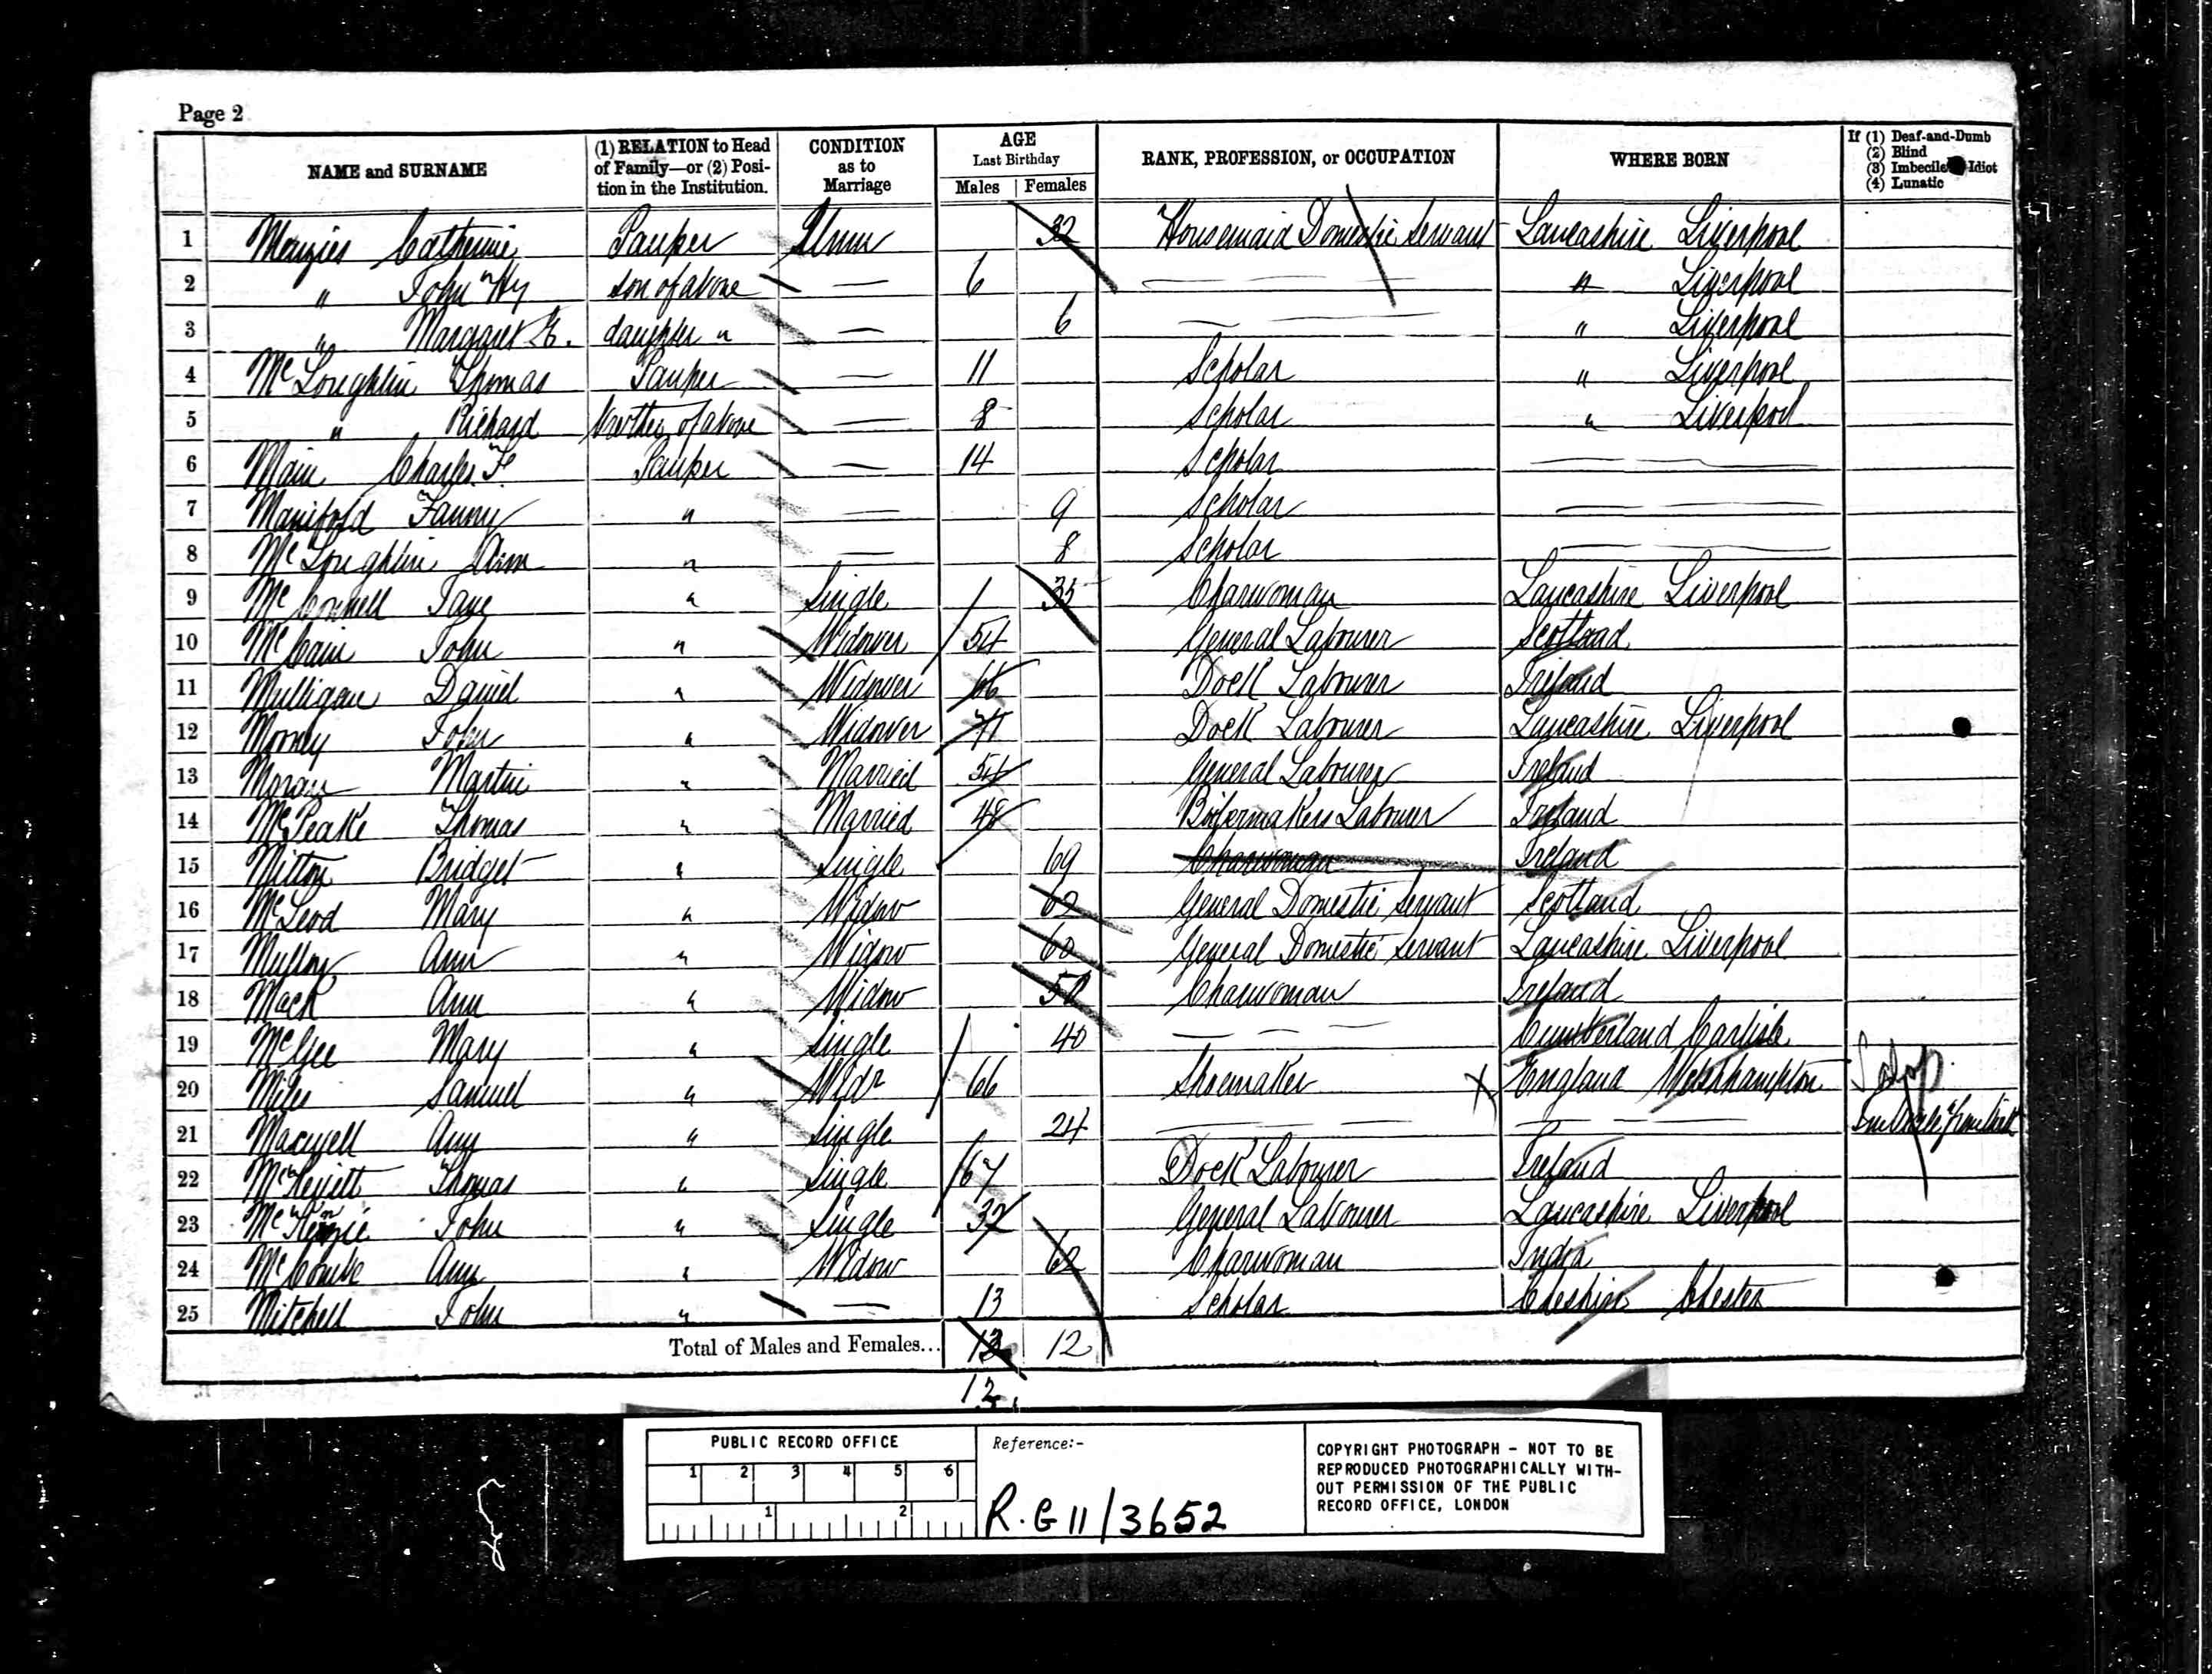 Page 2
NAME and SURNAME (1) RELATION to Head of Family—or (2) Position in the Institution. CONDITION as to Marriage AGE Last Birthday Males Females RANK, PROFESSION, or OCCUPATION WHERE BORN If (1) Deaf-and-Dumb (2) Blind (3) Imbecile Idiot (4) Lunatic
1 Menzies Catherine Pauper Unm 32 Housemaid Domestic Servant Lancashire Liverpool
2 " John Hy son of above — 6 " Liverpool
3 " Margaret daughter " — 6 " Liverpool
4 McLoughlin Thomas Pauper — 11 Scholar " Liverpool
5 " Richard brother of above — 8 Scholar " Liverpool
6 Main Charles F. Pauper — 14 Scholar —
7 Manifold Fanny " — 9 Scholar —
8 McLoughlin Ann " — 8 Scholar —
9 McConnell Jane " Single 35 Charwoman Lancashire Liverpool
10 McCain John " Widower 54 General Labourer Scotland
11 Mulligan Daniel " Widower 66 Dock Labourer Ireland
12 John " Widower 71 Dock Labourer Lancashire Liverpool
13 Moran Martin " Married 54 General Labourer Ireland
14 McPeake Thomas " Married 48 Boilermakers Labourer Ireland
15 Mitton Bridget " Single 69 Charwoman Ireland
16 McLeod Mary " Widow 62 General Domestic Servant Scotland
17 Mulloy Ann " Widow 60 General Domestic Servant Lancashire Liverpool
18 Mack Ann " Widow 52 Charwoman Ireland
19 McGee Mary " Single 40 — Cumberland Carlisle
20 Miles Samuel " Widr 66 Shoemaker X England Welshhampton Salop.
21 Maxwell Ann " Single 24 — — Imbecile from Birth
22 McKevitt Thomas " Single 67 Dock Labourer Ireland
23 McKenzie John " Single 32 General Labourer Lancashire Liverpool
24 McCombe Ann " Widow 62 Charwoman India
25 Mitchell John " — 13 Scholar Cheshire Chester
Total of Males and Females... 13 12
13
PUBLIC RECORD OFFICE Reference:-
1 2 3 4 5 6
1 2
R.G 11/3652
COPYRIGHT PHOTOGRAPH - NOT TO BE
REPRODUCED PHOTOGRAPHICALLY WITH-
OUT PERMISSION OF THE PUBLIC
RECORD OFFICE, LONDON